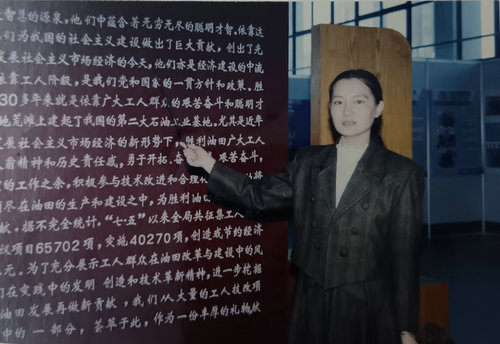 智慧的源泉，他们中蕴含着无穷无尽的聪明才智。依靠这
们为我国的社会主义建设做出了巨大贡献，创出了光
发展社会主义市场经济的今天，他们亦是经济建设的中流
依靠工人阶级，是我们党和国家的一贯方针和政策。胜
30多年来就是依靠广大工人群众的艰苦奋斗和聪明才
地荒滩上建起了我国的第二大石油工业基地。尤其是近年
社会主义市场经济的新形势下，胜利油田广大工人
人翁精神和历史责任感，勇于开拓、奋 艰苦奋斗，
的工作之余，积极参与技术改进和合理 将
用尽在油田的生产和建设之中，为胜利油
献。据不完全统计，“七·五”以来全局共征集工人
议项目65702项，实施40270项，创造或节约经济
元。为了充分展示工人群众在油田改革与建设中的风
们在实践中的发明 创造和技术革新精神，进一步挖掘
油田发展再做新贡献，我们从大量的工人技改项
中的一部分，荟萃于此，作为一份丰厚的礼物献